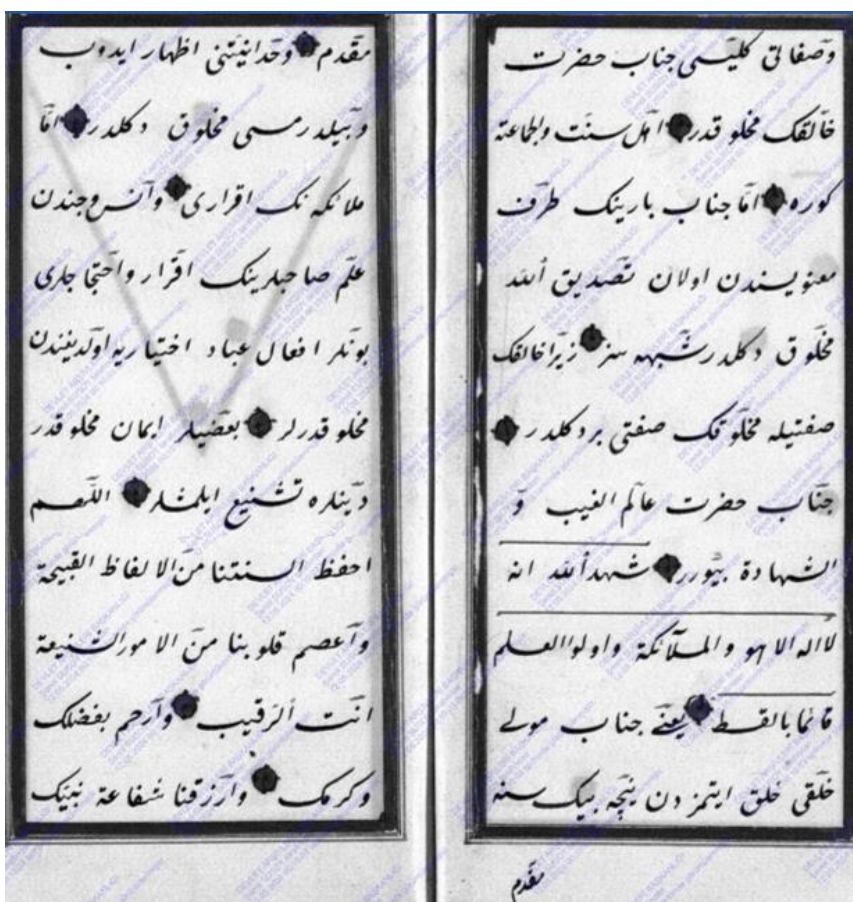 وصفاتی کلیسی جناب حضرت
خالقک مخلوقدر اهل سنت والجماعة
کوره اما جناب بارینک طرف
معنویسندن اولان تصدیق الله
مخلوق دکلدر شبهه سز زیرا خالقک
صفتیله مخلوقک صفتی بر دکلدر
جناب حضرت عالم الغیب و
الشهادة بیورر شهد الله انه
لااله الا هو والملآئکة واولوا العلم
قائما بالقسط یعنے جناب مولے
خلقی خلق ایتمزدن نیچه بیک سنه
مقدم
مقدم وحدانیتنی اظهار ایدوب
وبیلدرمسی مخلوق دکلدر اما
ملائکه نک اقراری وانس وجندن
علم صاحبلرینک اقرار واحتجاجاری
بونلر افعال عباد اختیاریه اولدیغندن
مخلوقدرلر بعضیلر ایمان مخلوقدر
دینلره تشنیع ایلمشلر اللهم
احفظ السنتنا من الالفاظ القبیحة
واعصم قلوبنا من الامور الشنیعة
انت الرقیب وارحم بفضلک
وکرمک وارزقنا شفاعة نبیک